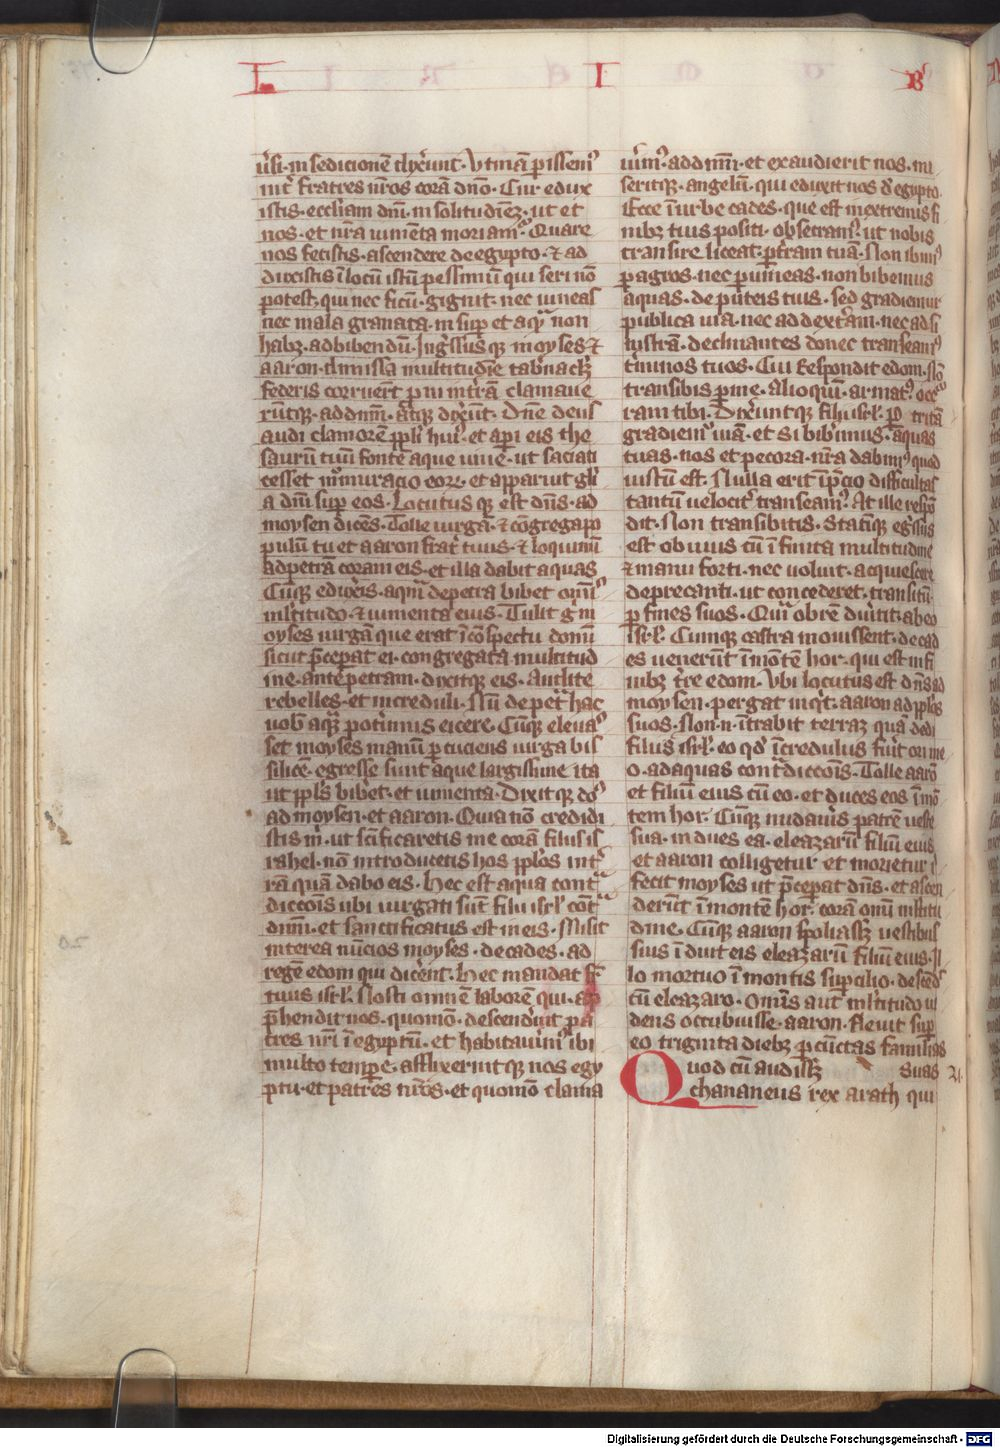 L I B
ũsi· in sedicionē dixẽunt· Vtinã pissemꝰ
int̃ fratres nr̃os corã dño· Cur edux
istis· eccl̃iam dñi· in solitudinẽ· ut et
nos· et nr̃a iumẽta moriamꝰ· Quare
nos fecistis· ascendere de egypto· ⁊ ad
duxistis ĩ locũ istũ pessimũ qui seri nõ
potest· qui nec ficũ· gignit· nec uineas
nec mala granata· in sup̃ et aqᷓ non
habꝫ· ad bibendũ· Ingr̃ssus qꝫ moyses ⁊
aaron· dimissa multitudĩe tab̃nac̃li
federis corruer̃t p̃ni in tr̃am clamaue
rũtqꝫ· ad dñm· atqꝫ dix̃ũt· Dñe deus
audi clamorẽ pp̃li huiꝰ· et ap̃i eis the
saurũ tuũ fontẽ aque uiue· ut saciati
cesset m̃muracio eoꝝ· et apparuit gl̃i
a dñi sup̃ eos· Locutus qꝫ est dñs· ad
moysen dicẽs· Tolle uirgã· ⁊ cõgrega po
pulũ tu et aaron frat̃ tuus· ⁊ loquimĩ
ad petrã coram eis· et illa dabit aquas
Cũqꝫ eduxẽis· aquã de petra bibet om̃is
ml̃titudo· ⁊ iumenta eius· Tulit g̃ m
oyses uirgã que erat ĩ cõspectu domĩ
sicut p̃cepat ei· congregata multitud
ine· ante petram· dixitqꝫ eis· Audite
rebelles· et increduli· Nũ de petᷓ hac
uob̃ aqᷓ poterimus eicere· Cũqꝫ eleuaꝰ
set moyses manũ p̱cuciens uirga bis
silicẽ· egresse sunt aque largissime ita
ut pp̃ls bib̃et· et iumenta· Dixitqꝫ dñs
ad moysen· et aaron· Quia nõ credidi
stis m̃· ut sc̃ificaretis me corã filiis is
rahel· nõ introducetis hos pp̃los int̃
rã quã dabo eis· Hec est aqua cont̃
dicc̃ois ubi iurgati sũt filii isr̃l cõt̃
dñm· et sanctificatus est in eis· Misit
interea nũcios moyses· de cades· ad
regẽ edom qui dic̃ent· Hec mandat fr̃
tuus isr̃l· Nosti omnẽ laborẽ qui· ap
p̃hendit nos· quomõ· descend̃int pa
tres nr̃i ĩ egyptũ· et habitauimꝰ ibi
multo tempe· afflixeruntqꝫ nos egy
ptii· et patres nr̃os· et quomõ clama
uimꝰ· ad dñm· et exaudierit nos· mi
seritqꝫ· angelũ· qui eduxit nos de egypto
Ecce ĩ urbe cades· que est in extremis fi
nibꝫ tuis positi· obsecramꝰ· ut nobis
transire liceat· p̱ t̃ram tuã· Non ibimꝰ
p̱ agros· nec p̱ uineas· non bibemus
aquas· de puteis tuis· sed gradiemur
publica uia· nec ad dext̃am· nec ad si
nistrã· declinantes donec transeamꝰ
t̃minos tuos· Cui Respondit edom· Nõ
transibis p̱ me· Alioquĩ· armatꝰ occꝰ
ram tibi· Dixẽuntqꝫ filii isr̃l· p̱ tritã
gradiemꝰ uiã· et si bib̃imus· aquas
tuas· nos et pecora· nr̃a dabimꝰ quod
iustũ est· Nulla erit ĩ p̃cio difficultas
tantũ uelocit̃ transeamꝰ· At ille respõ
dit· Non transibitis· Statĩqꝫ eg̃ssus
est obuius cũ ĩfinita multitudine
⁊ manu forti· nec uoluit· acquiescere
deprecanti· ut concederet· transitũ
p̱ fines suos· Quã obrẽ diũtit· ab eo
isr̃l· Cumqꝫ castra mouissent· de cad
es uenerũt ĩ mõtẽ hor· qui est in fi
nibꝫ t̃re edom· Vbi locutus est dñs ad
moysen· pergat inqͥt· aaron ad pp̃los
suos· Non· n· ĩtrabit terraꝫ quã dedi
filiis isr̃l· eo qd̃ ĩcredulus fũit ori me
o· ad aquas cont̃dicc̃ois· Tolle aarõ
et filiũ eius cũ eo· et duces eos ĩ mõ
tem hor· Cũqꝫ nudauis patrẽ ueste
sua· indues ea· eleazarũ filiũ eius
et aaron colligetur et morietur i
fecit moyses ut p̃cepat dñs· et ascen
derũt ĩ montẽ hor· corã omĩ ml̃titu
dine· Cũqꝫ aaron spoliassꝫ uestibus
suis ĩduit eis eleazarũ filiũ eius· Il
lo mortuo ĩ montis sup̱cilio· descẽd̃
cũ eleazaro· Omĩs aut̃ ml̃titudo ui
dens occubuisse· aaron· fleuit sup̱
eo triginta diebꝫ p̱ cũctas familias
Quod cũ audissꝫ suas 21·
chananeus rex arath qui
20
Digitalisierung gefördert durch die Deutsche Forschungsgemeinschaft - DFG